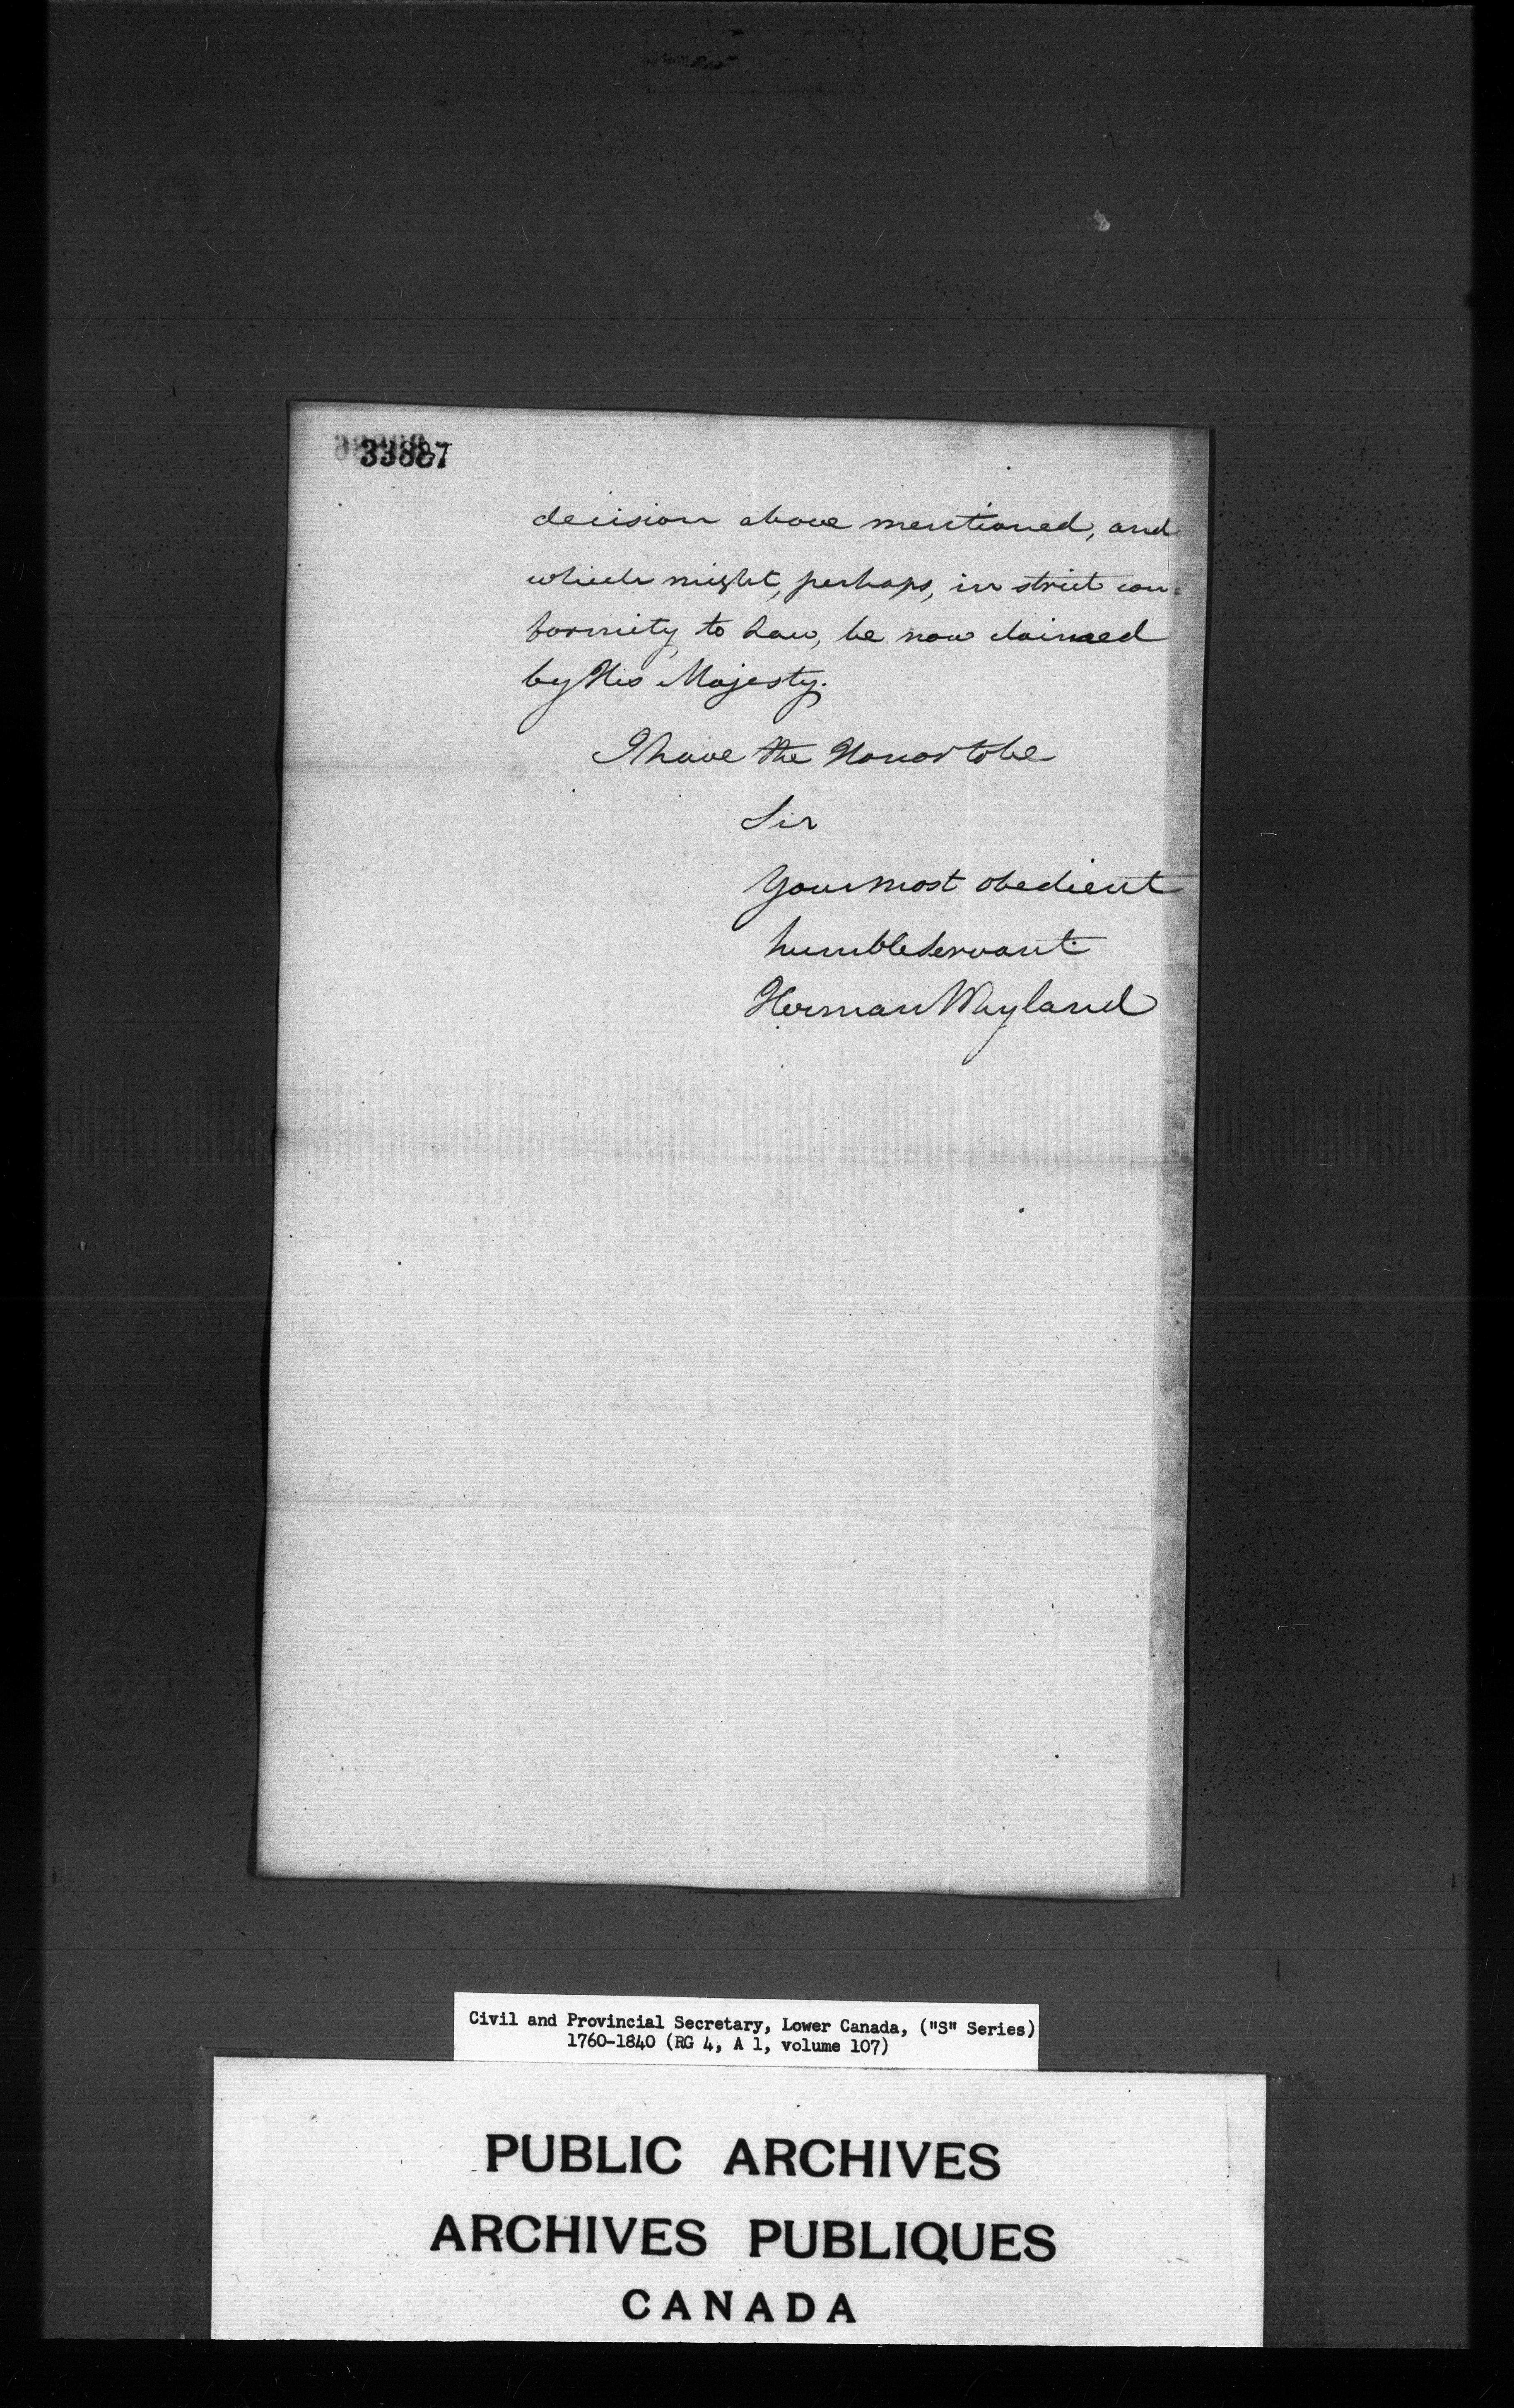 33887
decision above mentioned, and
which might, perhaps, in strict con=
formity to Law, be now claimed
by His Majesty.
I have the Honor to be
Sir
Your most obedient
humble Servant
Herman Wayland
Civil and Provincial Secretary, Lower Canada, ("S" Series)
1760-1840 (RG 4, A 1, volume 107)
PUBLIC ARCHIVES
ARCHIVES PUBLIQUES
CANADA